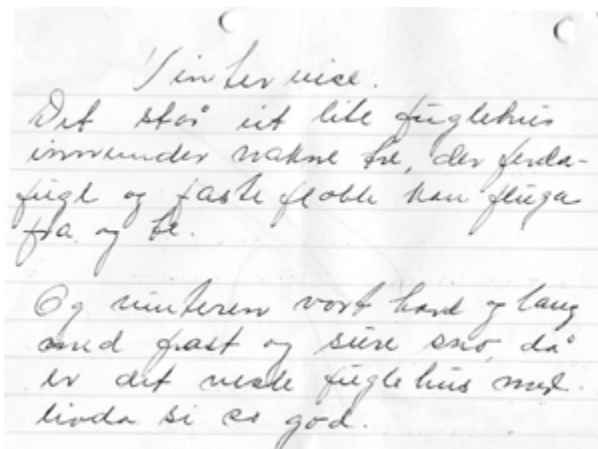 Vintervise.
Det står eit lite fuglehus
innunder nakne tre, der ferda-
fugl og faste flokk kan fluga
fra og te.
Og vinteren vort hard og lang
med frost og sure snø, då
er det vesle fuglehus med
livda si so god.